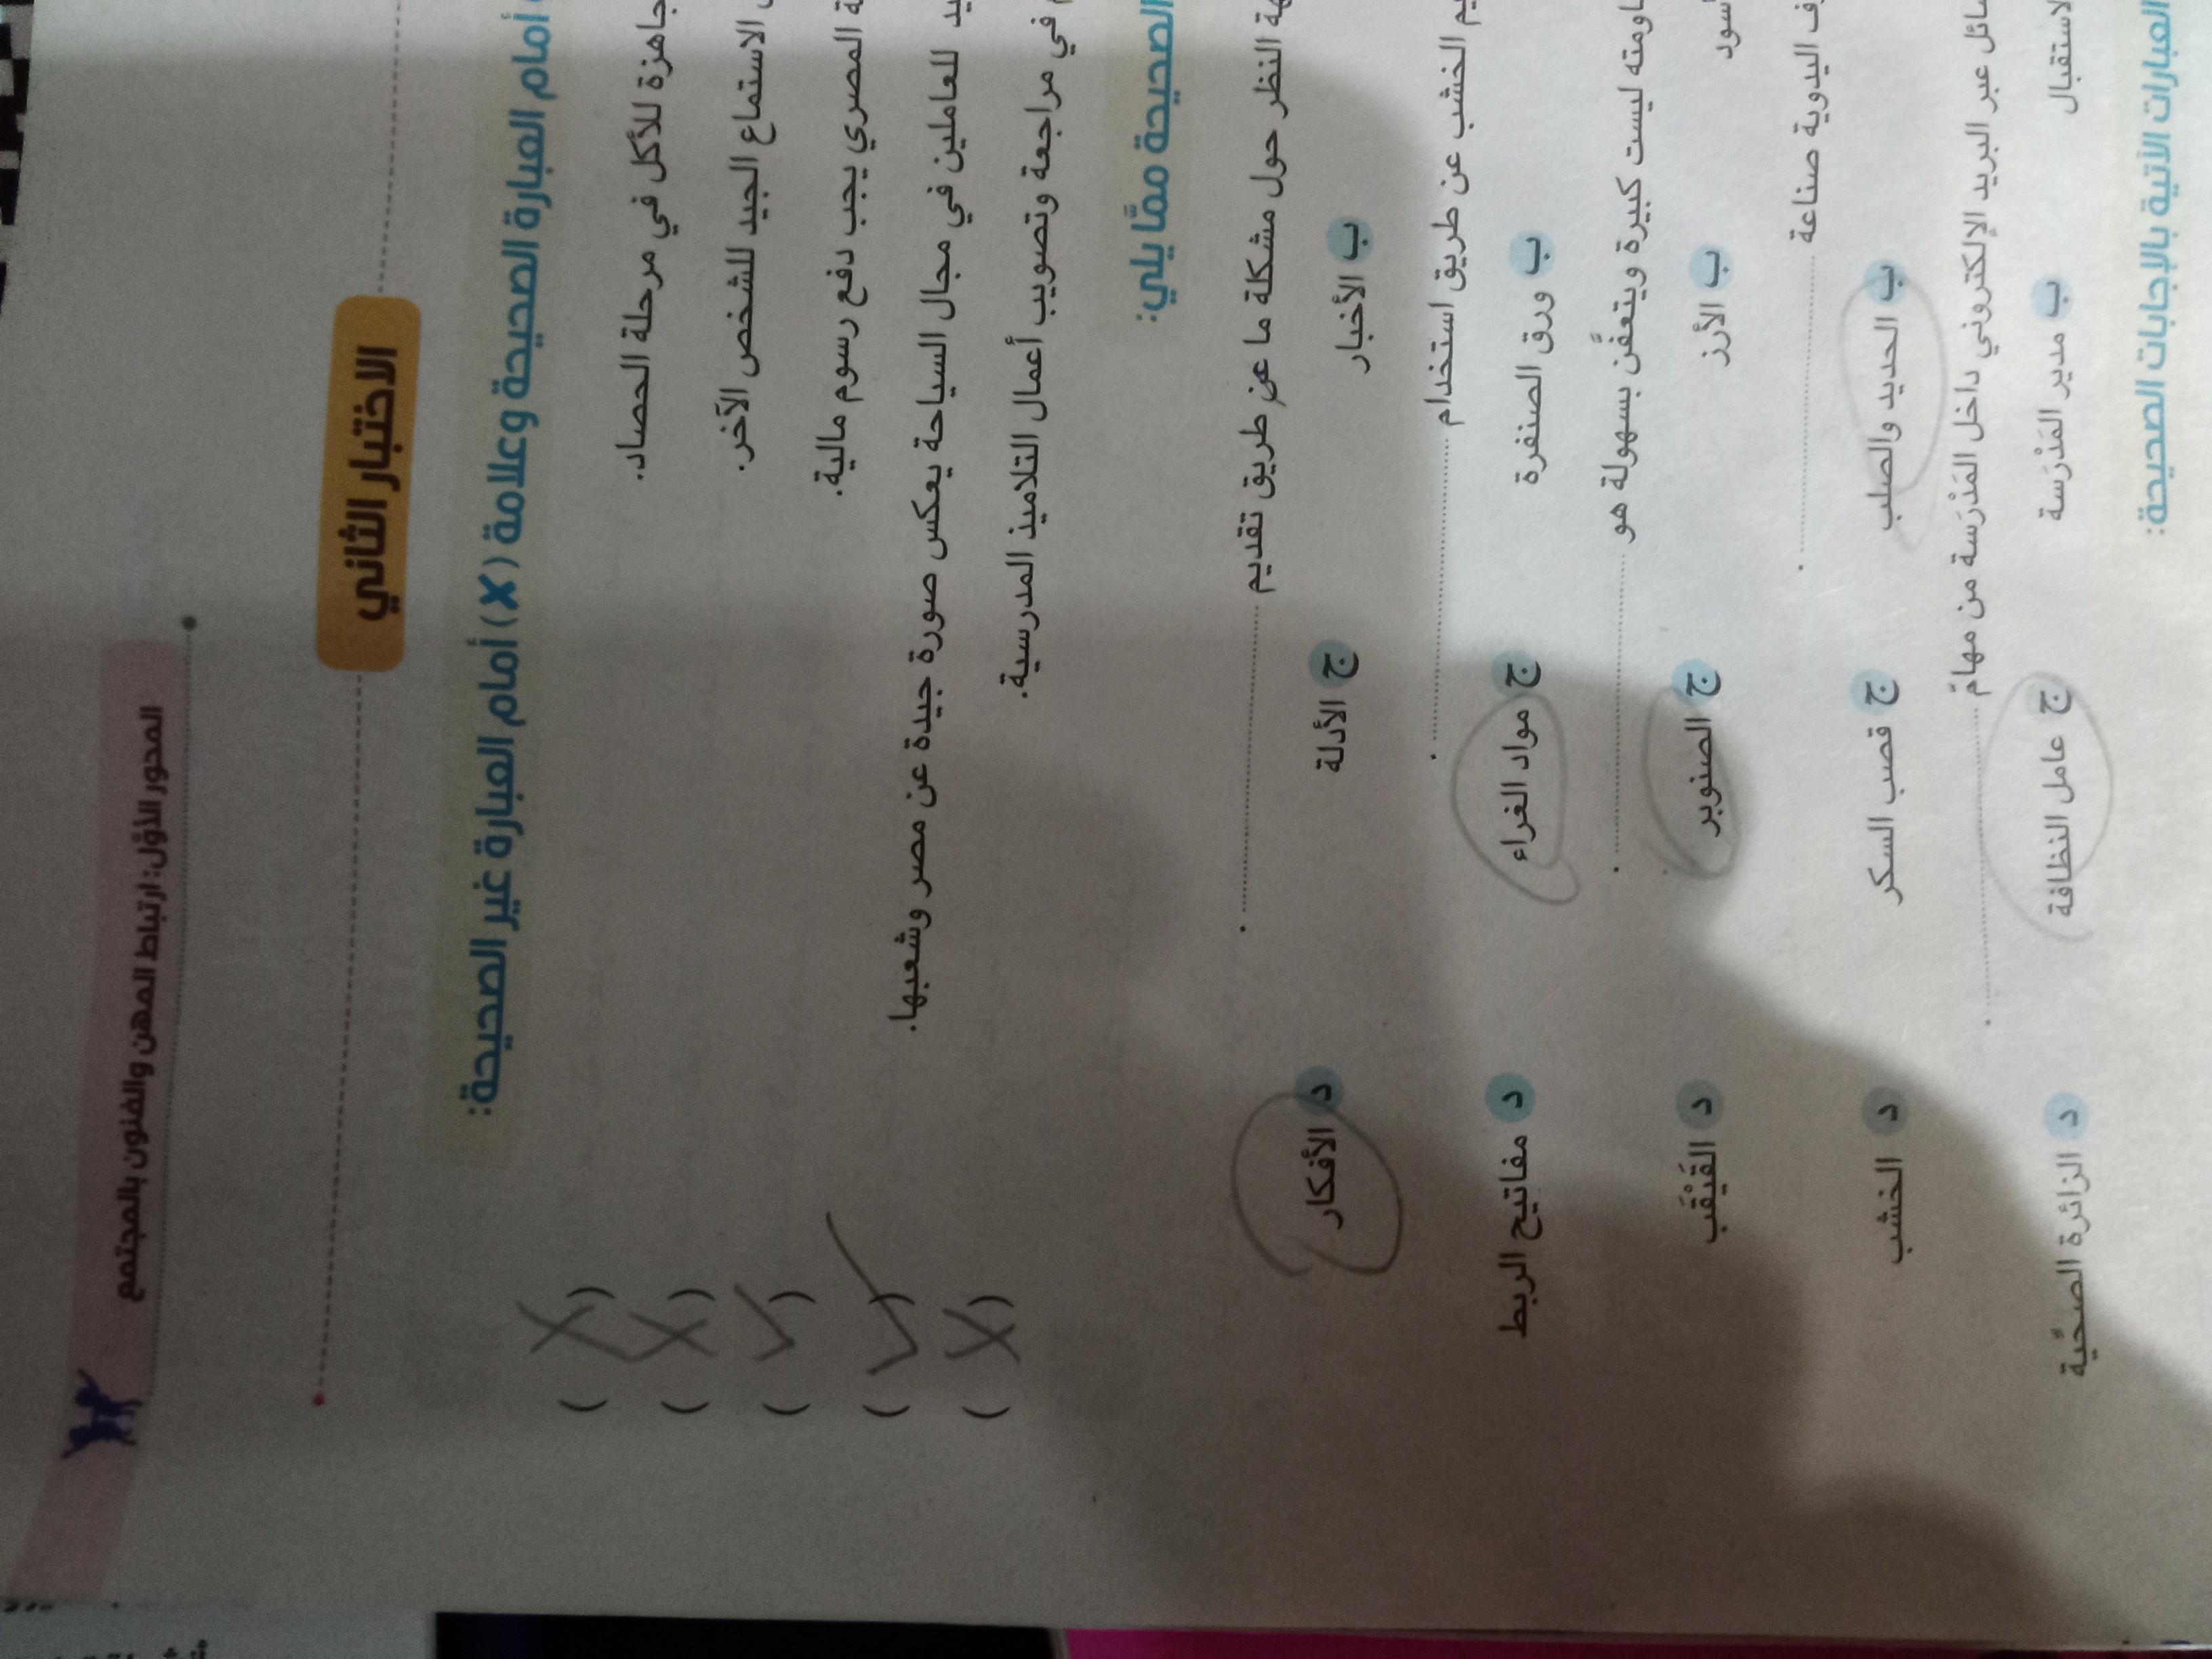 المحور الأوَّل: ارتباط المهن والفنون بالمجتمع
الاختبار الثاني
أمام العبارة الصحيحة وعلامة (✗) أمام العبارة غير الصحيحة:
جاهزة للأكل في مرحلة الحصاد. ( X )
الاستماع الجيد للشخص الآخر. ( X )
المصري يجب دفع رسوم مالية. ( ✓ )
للعاملين في مجال السياحة يعكس صورة جيدة عن مصر وشعبها. ( ✓ )
في مراجعة وتصويب أعمال التلاميذ المدرسية. ( X )
الصحيحة ممَّا يلي:
النظر حول مشكلة ما عن طريق تقديم .................... .
ب الأخبار ج الأدلة د الأفكار
الخشب عن طريق استخدام .................... .
ب ورق الصنفرة ج مواد الغراء د مفاتيح الربط
ليست كبيرة ويتعفَّن بسهولة هو .................... .
ب الأرز ج الصنوبر د القَيْقَب
اليدوية صناعة .................... .
ب الحديد والصلب ج قصب السكر د الخشب
عبر البريد الإلكتروني داخل المَدْرَسة من مهامّ .................... .
ب مدير المَدْرَسة ج عامل النظافة د الزائرة الصحِّية
العبارات الآتية بالإجابات الصحيحة: